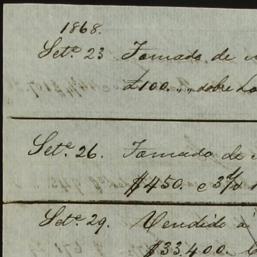 1868.
Set.e 23 Tomado de
£100. ,, ,, sobre Lo
Set.e 26. Tomado de
$450. e 3%
Set.e 29. Vendido a
$33,400.